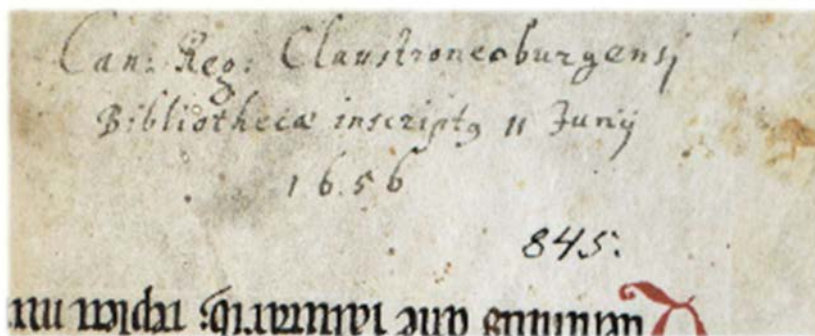 Can: Reg: Claustroneoburgensi
Bibliothecæ inscriptꝯ 11 Junij
1656
845.